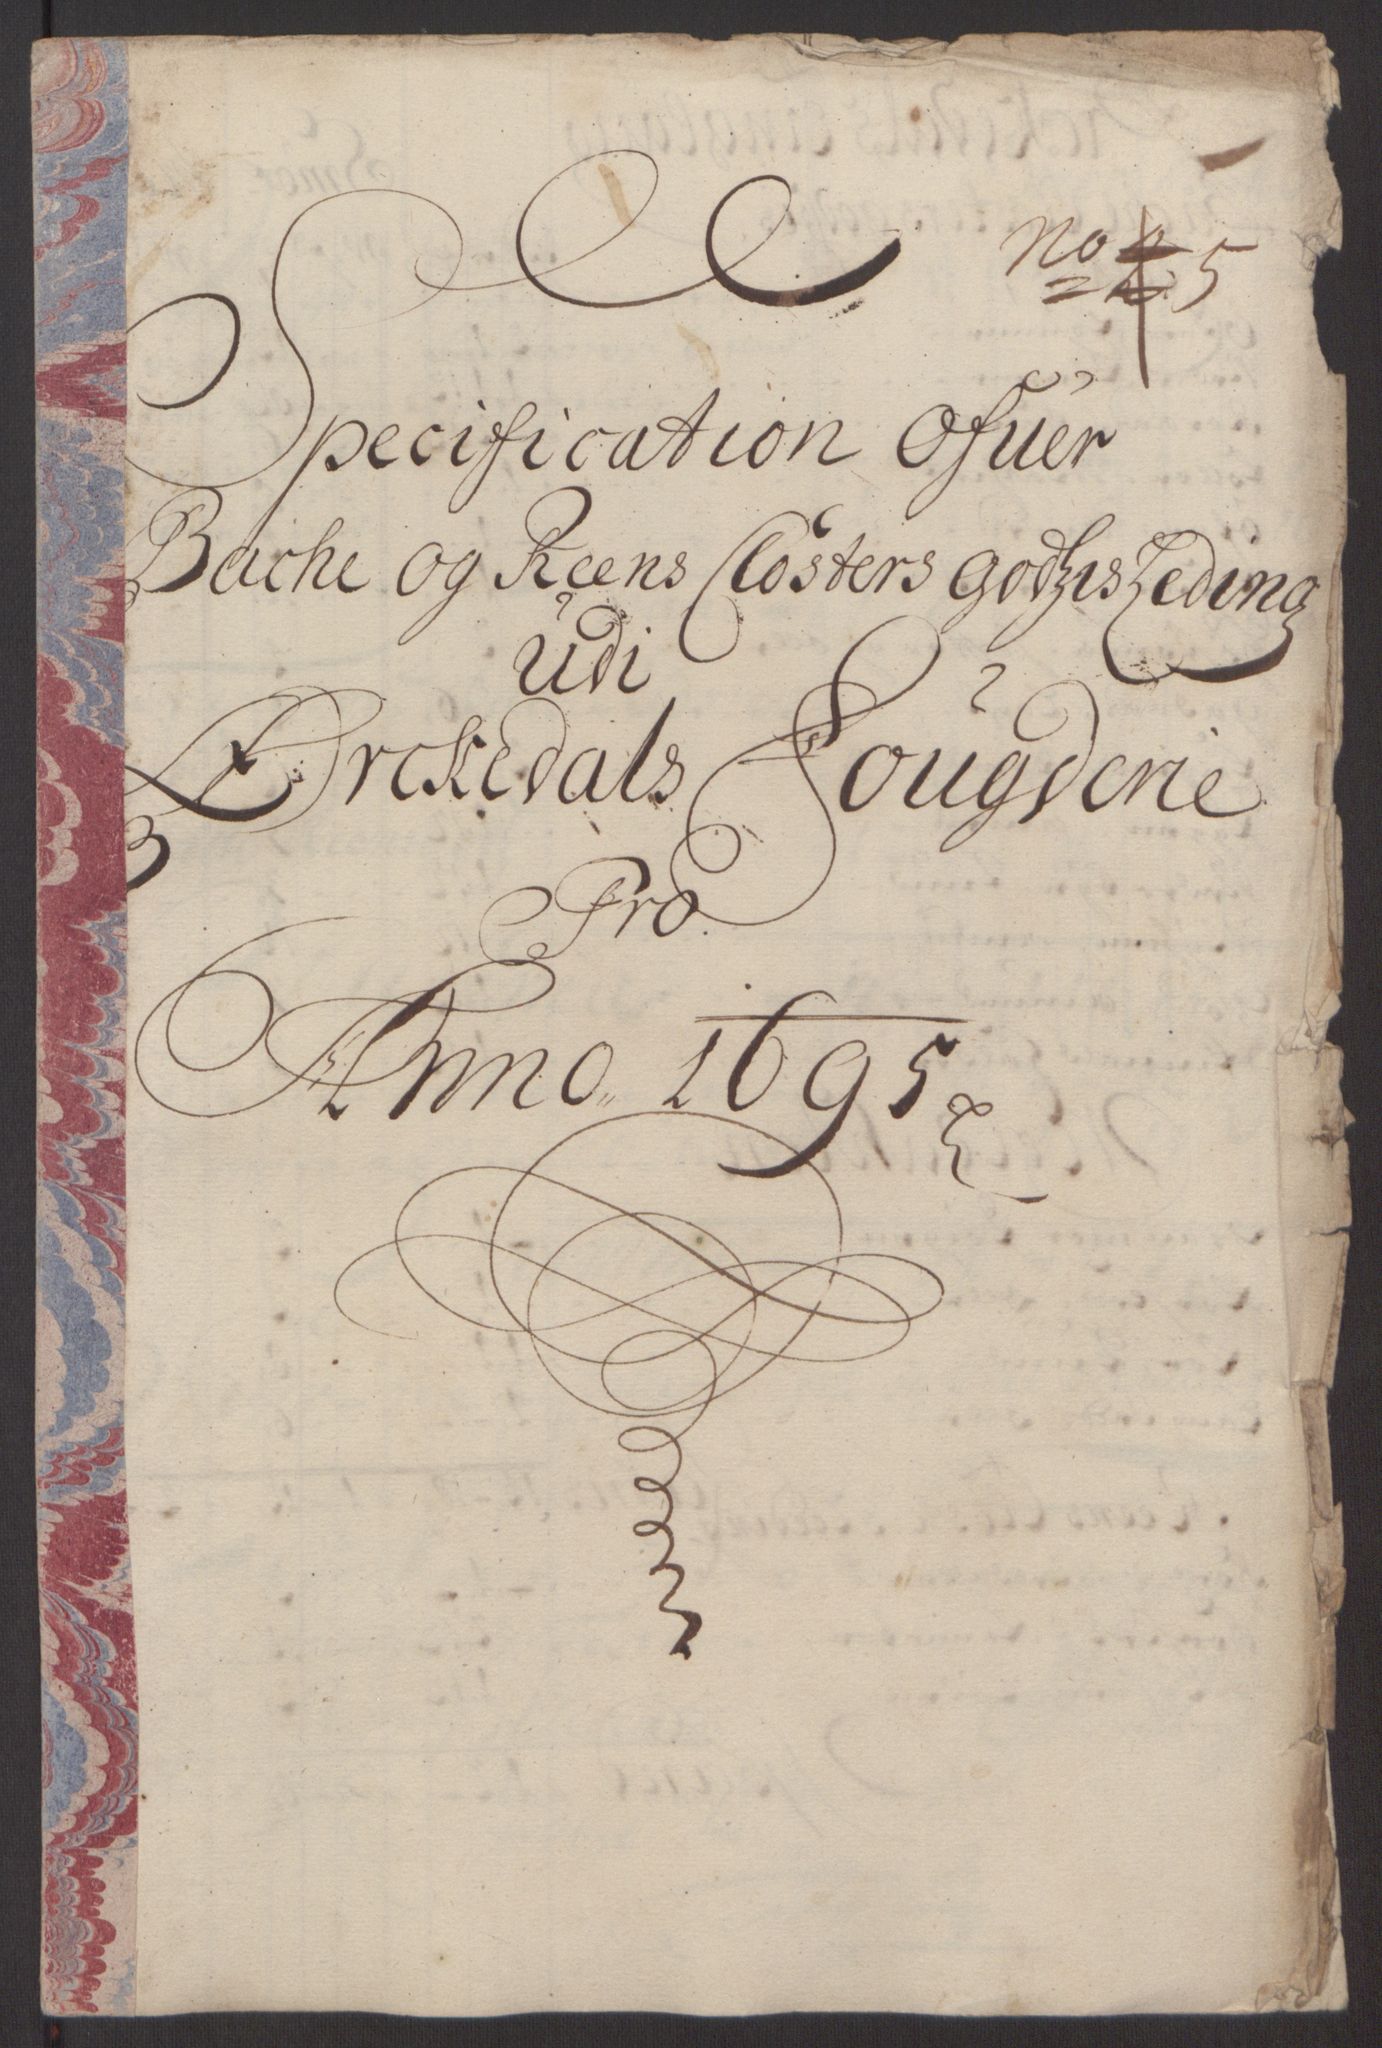 No 5
Specification Ofuer
Bache og Reens Closters godtzis Leding
udi
Orckedals Fougderie
Pro
Anno 1695